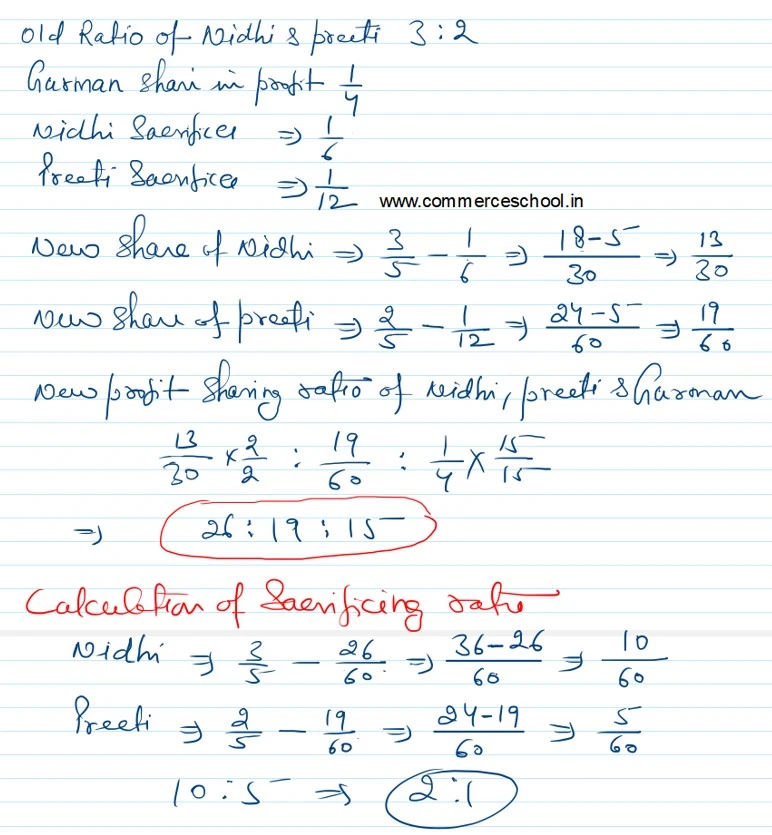 Old Ratio of Nidhi & preeti 3 : 2
Gurman share in profit 1/4
Nidhi Sacrifices ⇒ 1/6
Preeti Sacrifices ⇒ 1/12
www.commerceschool.in
New Share of Nidhi ⇒ 3/5 − 1/6 ⇒ 18−5/30 ⇒ 13/30
New Share of preeti ⇒ 2/5 − 1/12 ⇒ 24−5/60 ⇒ 19/60
New profit Sharing ratio of Nidhi, preeti & Gurman
13/30 × 2/2 : 19/60 : 1/4 × 15/15
⇒ 26 : 19 : 15
Calculation of Sacrificing ratio
Nidhi ⇒ 3/5 − 26/60 ⇒ 36−26/60 ⇒ 10/60
Preeti ⇒ 2/5 − 19/60 ⇒ 24−19/60 ⇒ 5/60
10 : 5 ⇒ 2 : 1